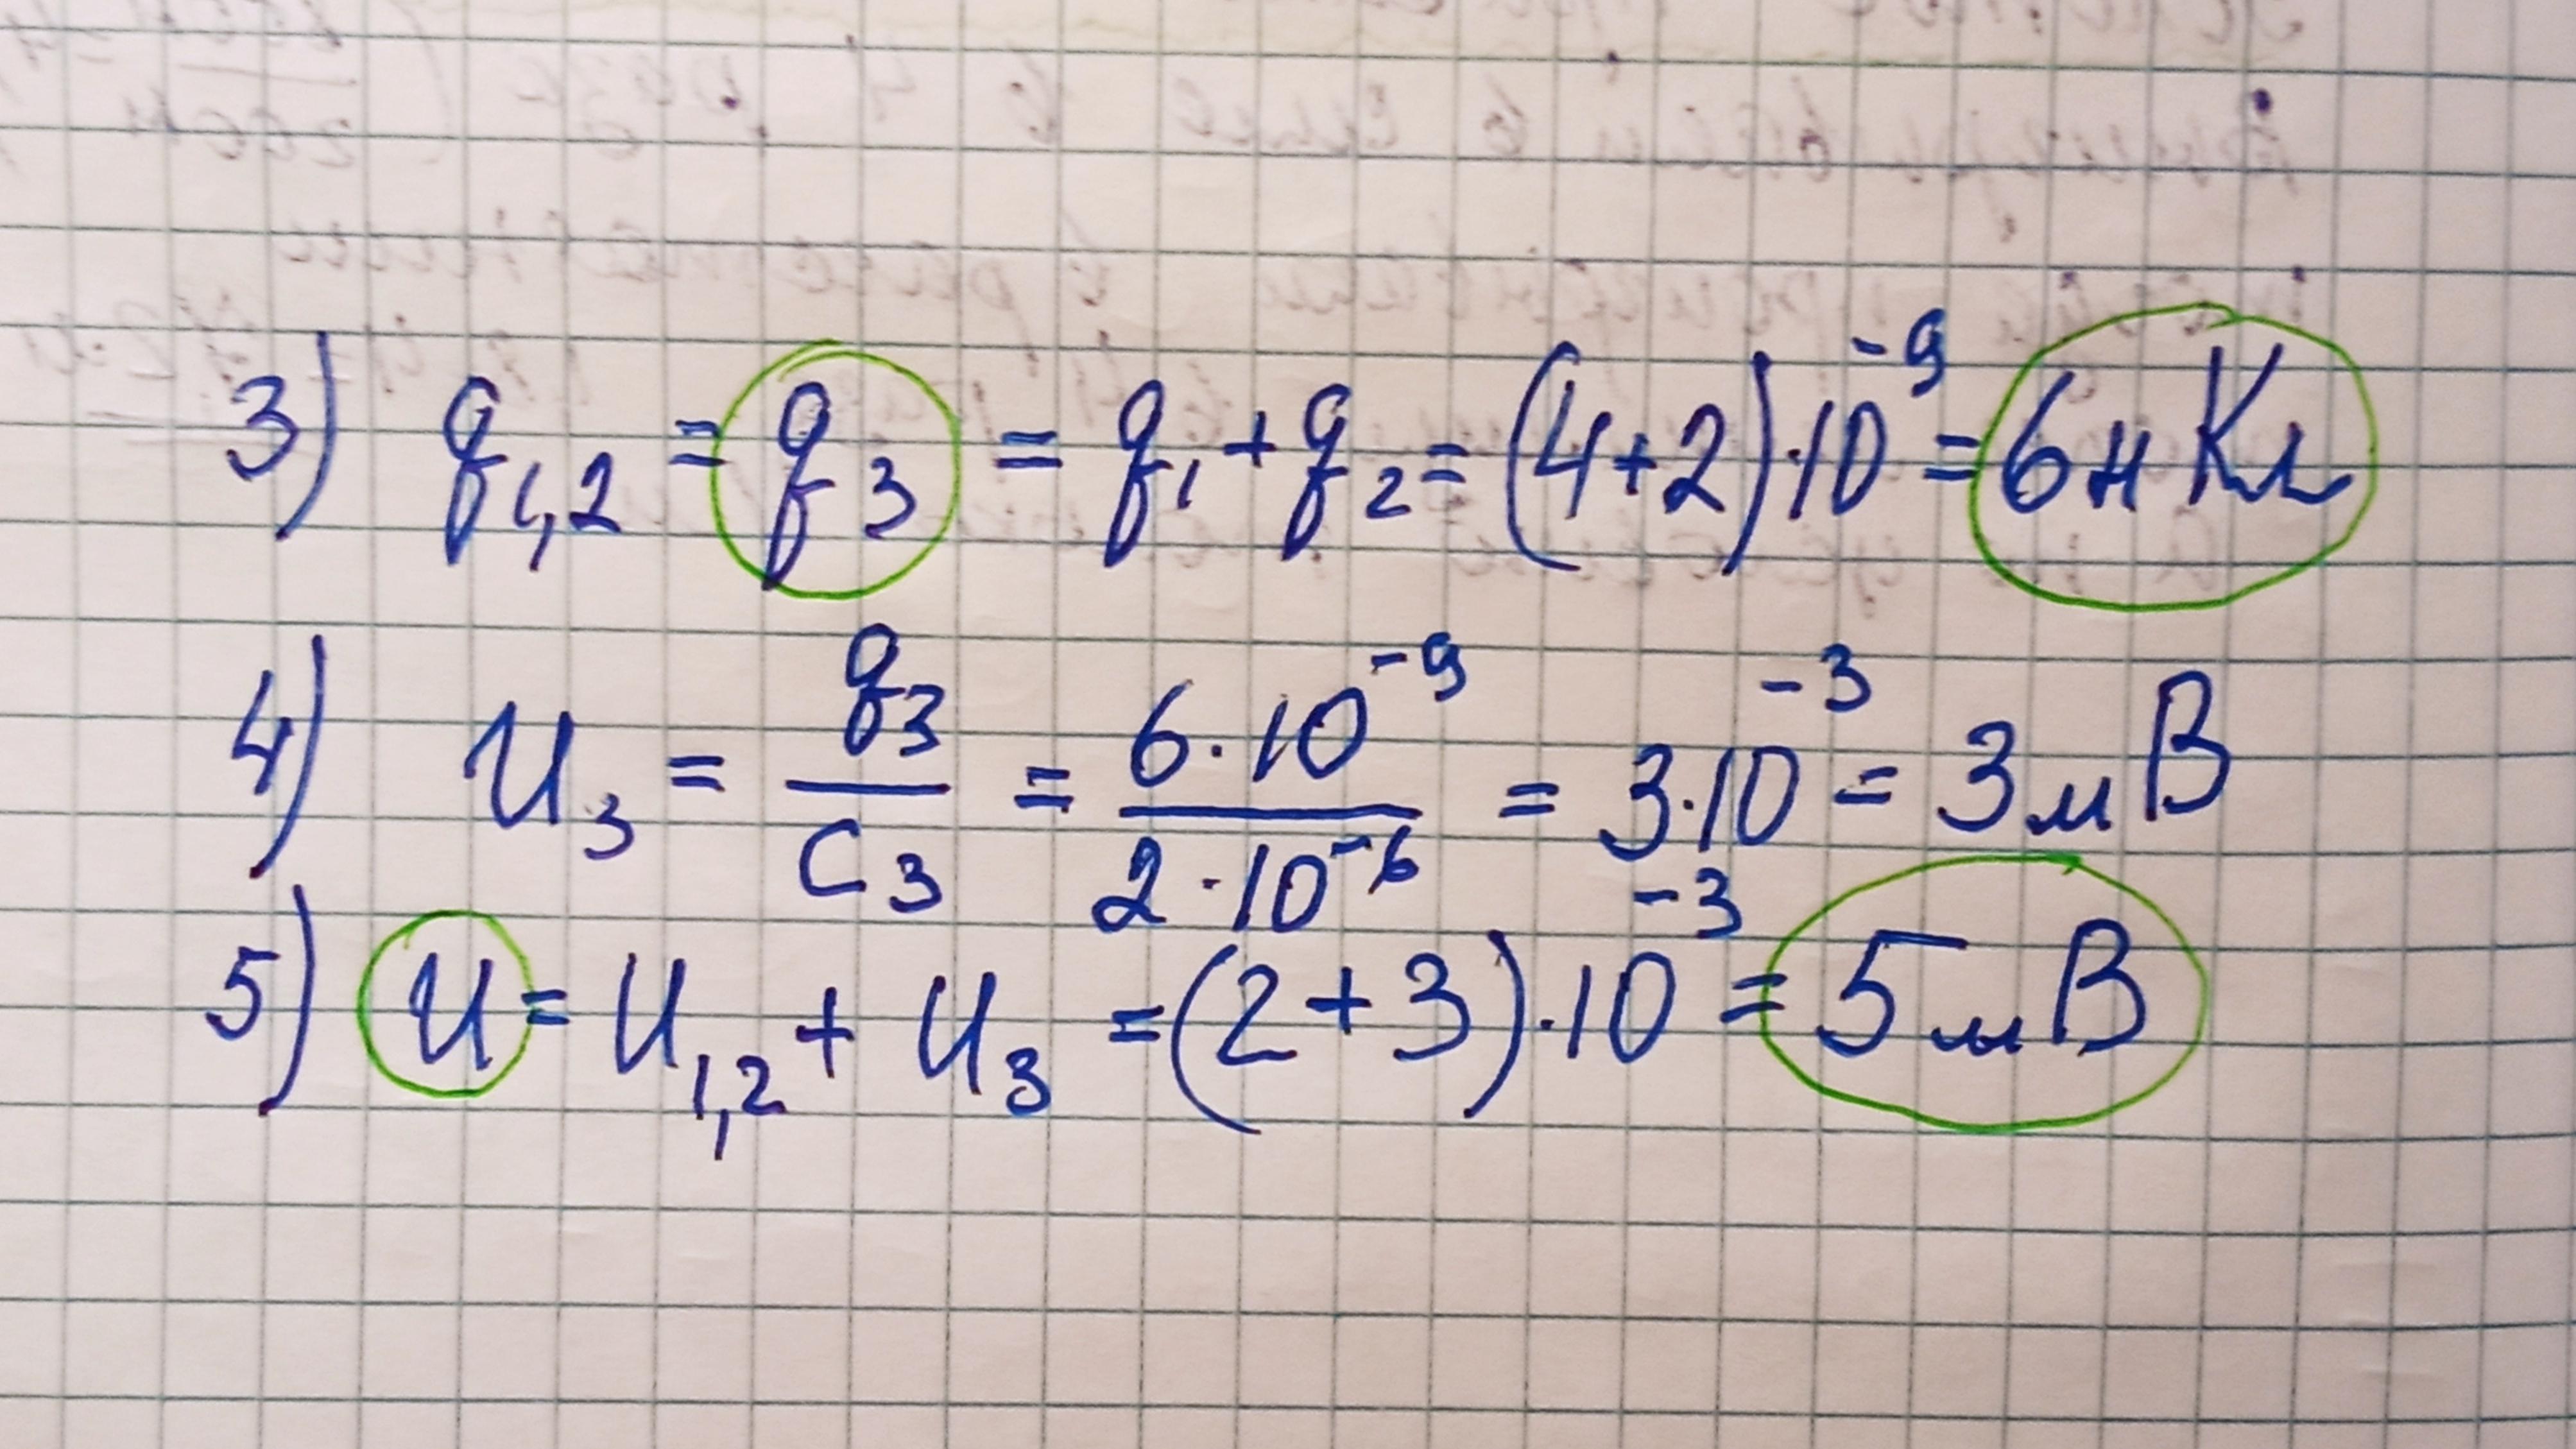 3) q₁,₂ = q₃ = q₁ + q₂ = (4+2)·10⁻⁹ = 6нКл
4) U₃ = q₃/C₃ = 6·10⁻⁹/2·10⁻⁶ = 3·10⁻³ = 3мВ
5) U = U₁,₂ + U₃ = (2+3)·10⁻³ = 5мВ